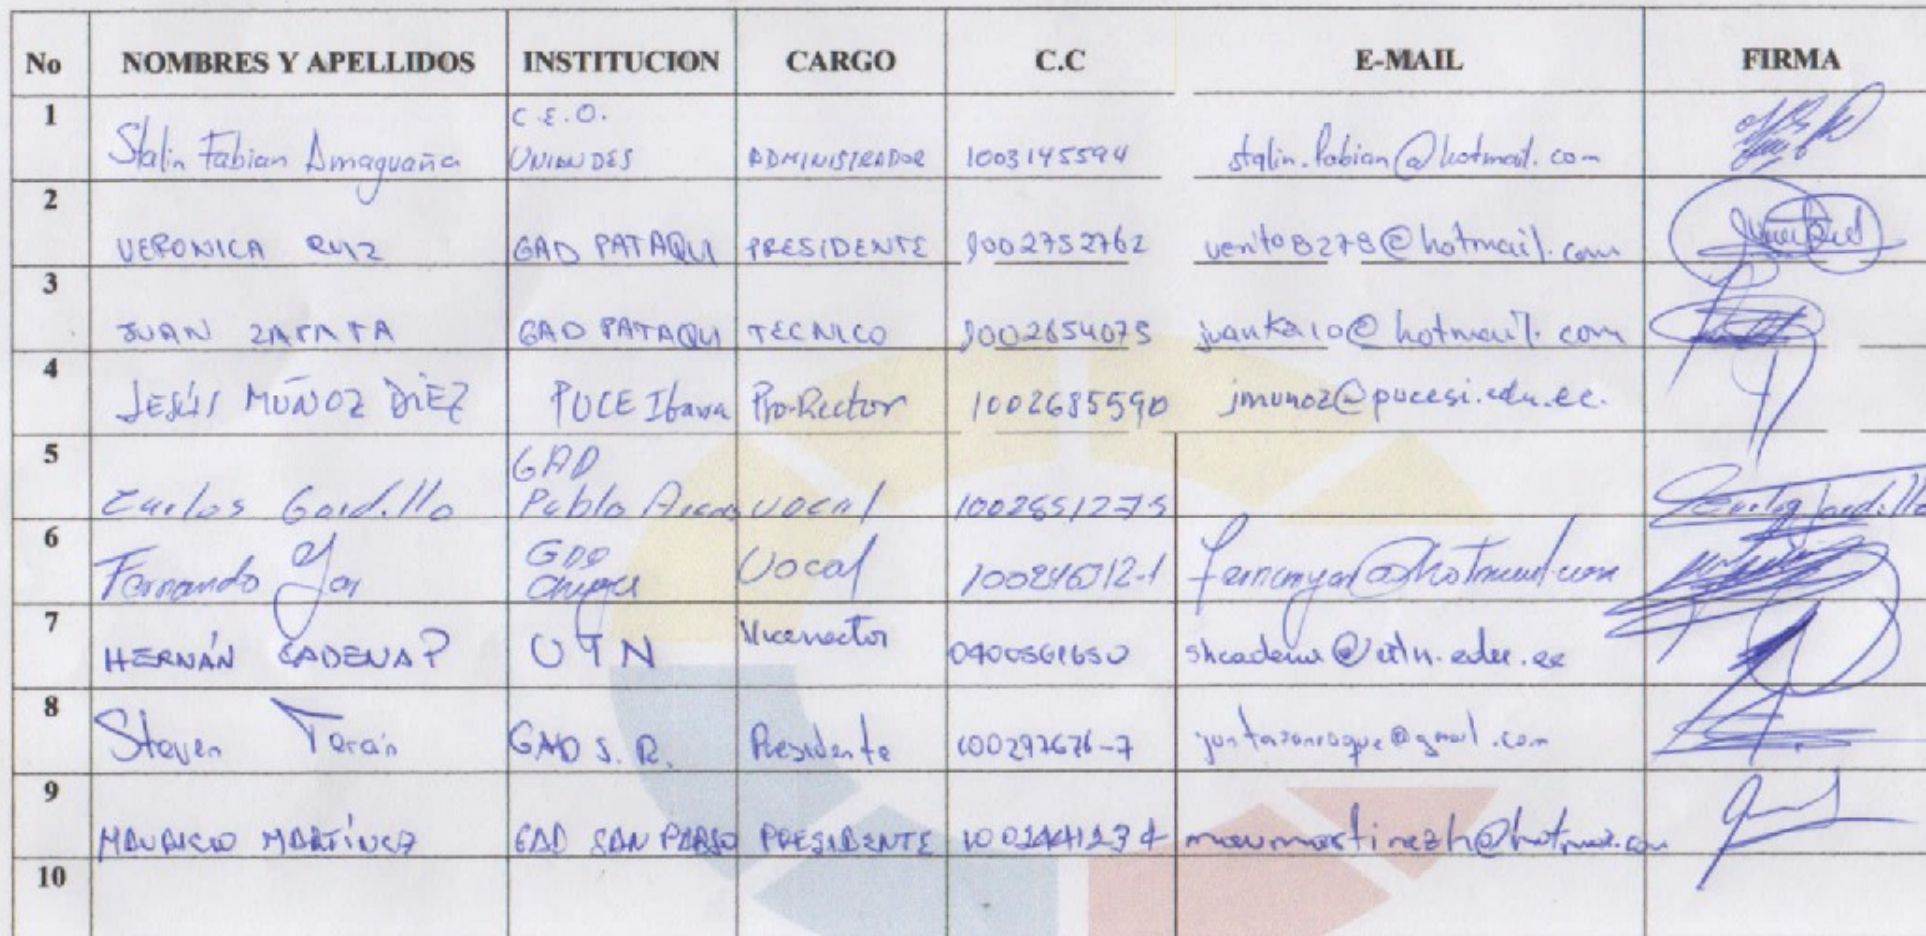 No NOMBRES Y APELLIDOS INSTITUCION CARGO C.C E-MAIL FIRMA
1 Stalin Fabian Amaguaña C.E.O. UNIANDES ADMINISTRADOR 1003145594 stalin.fabian@hotmail.com
2 VERONICA RUIZ GAD PATAQUI PRESIDENTE 1002752762 verito8278@hotmail.com
3 JUAN ZAPATA GAD PATAQUI TECNICO 1002654075 juanka10@hotmail.com
4 JESÚS MUÑOZ DIEZ PUCE Ibarra Pro-Rector 1002685590 jmunoz@pucesi.edu.ec.
5 Carlos Gordillo GAD Pablo Arenas VOCAL 100265127-5 Carlos Gordillo
6 Fernando GAD Vocal
7 HERNÁN CADENA P UTN Vicerrector 0400561650 shcadena@utn.edu.ec
8 Steven Terán GAD S.R. Presidente 100297676-7 juntasanroque@gmail.com
9 MAURICIO MARTÍNEZ GAD SAN PABLO PRESIDENTE maumartinezh@hotmail.com
10